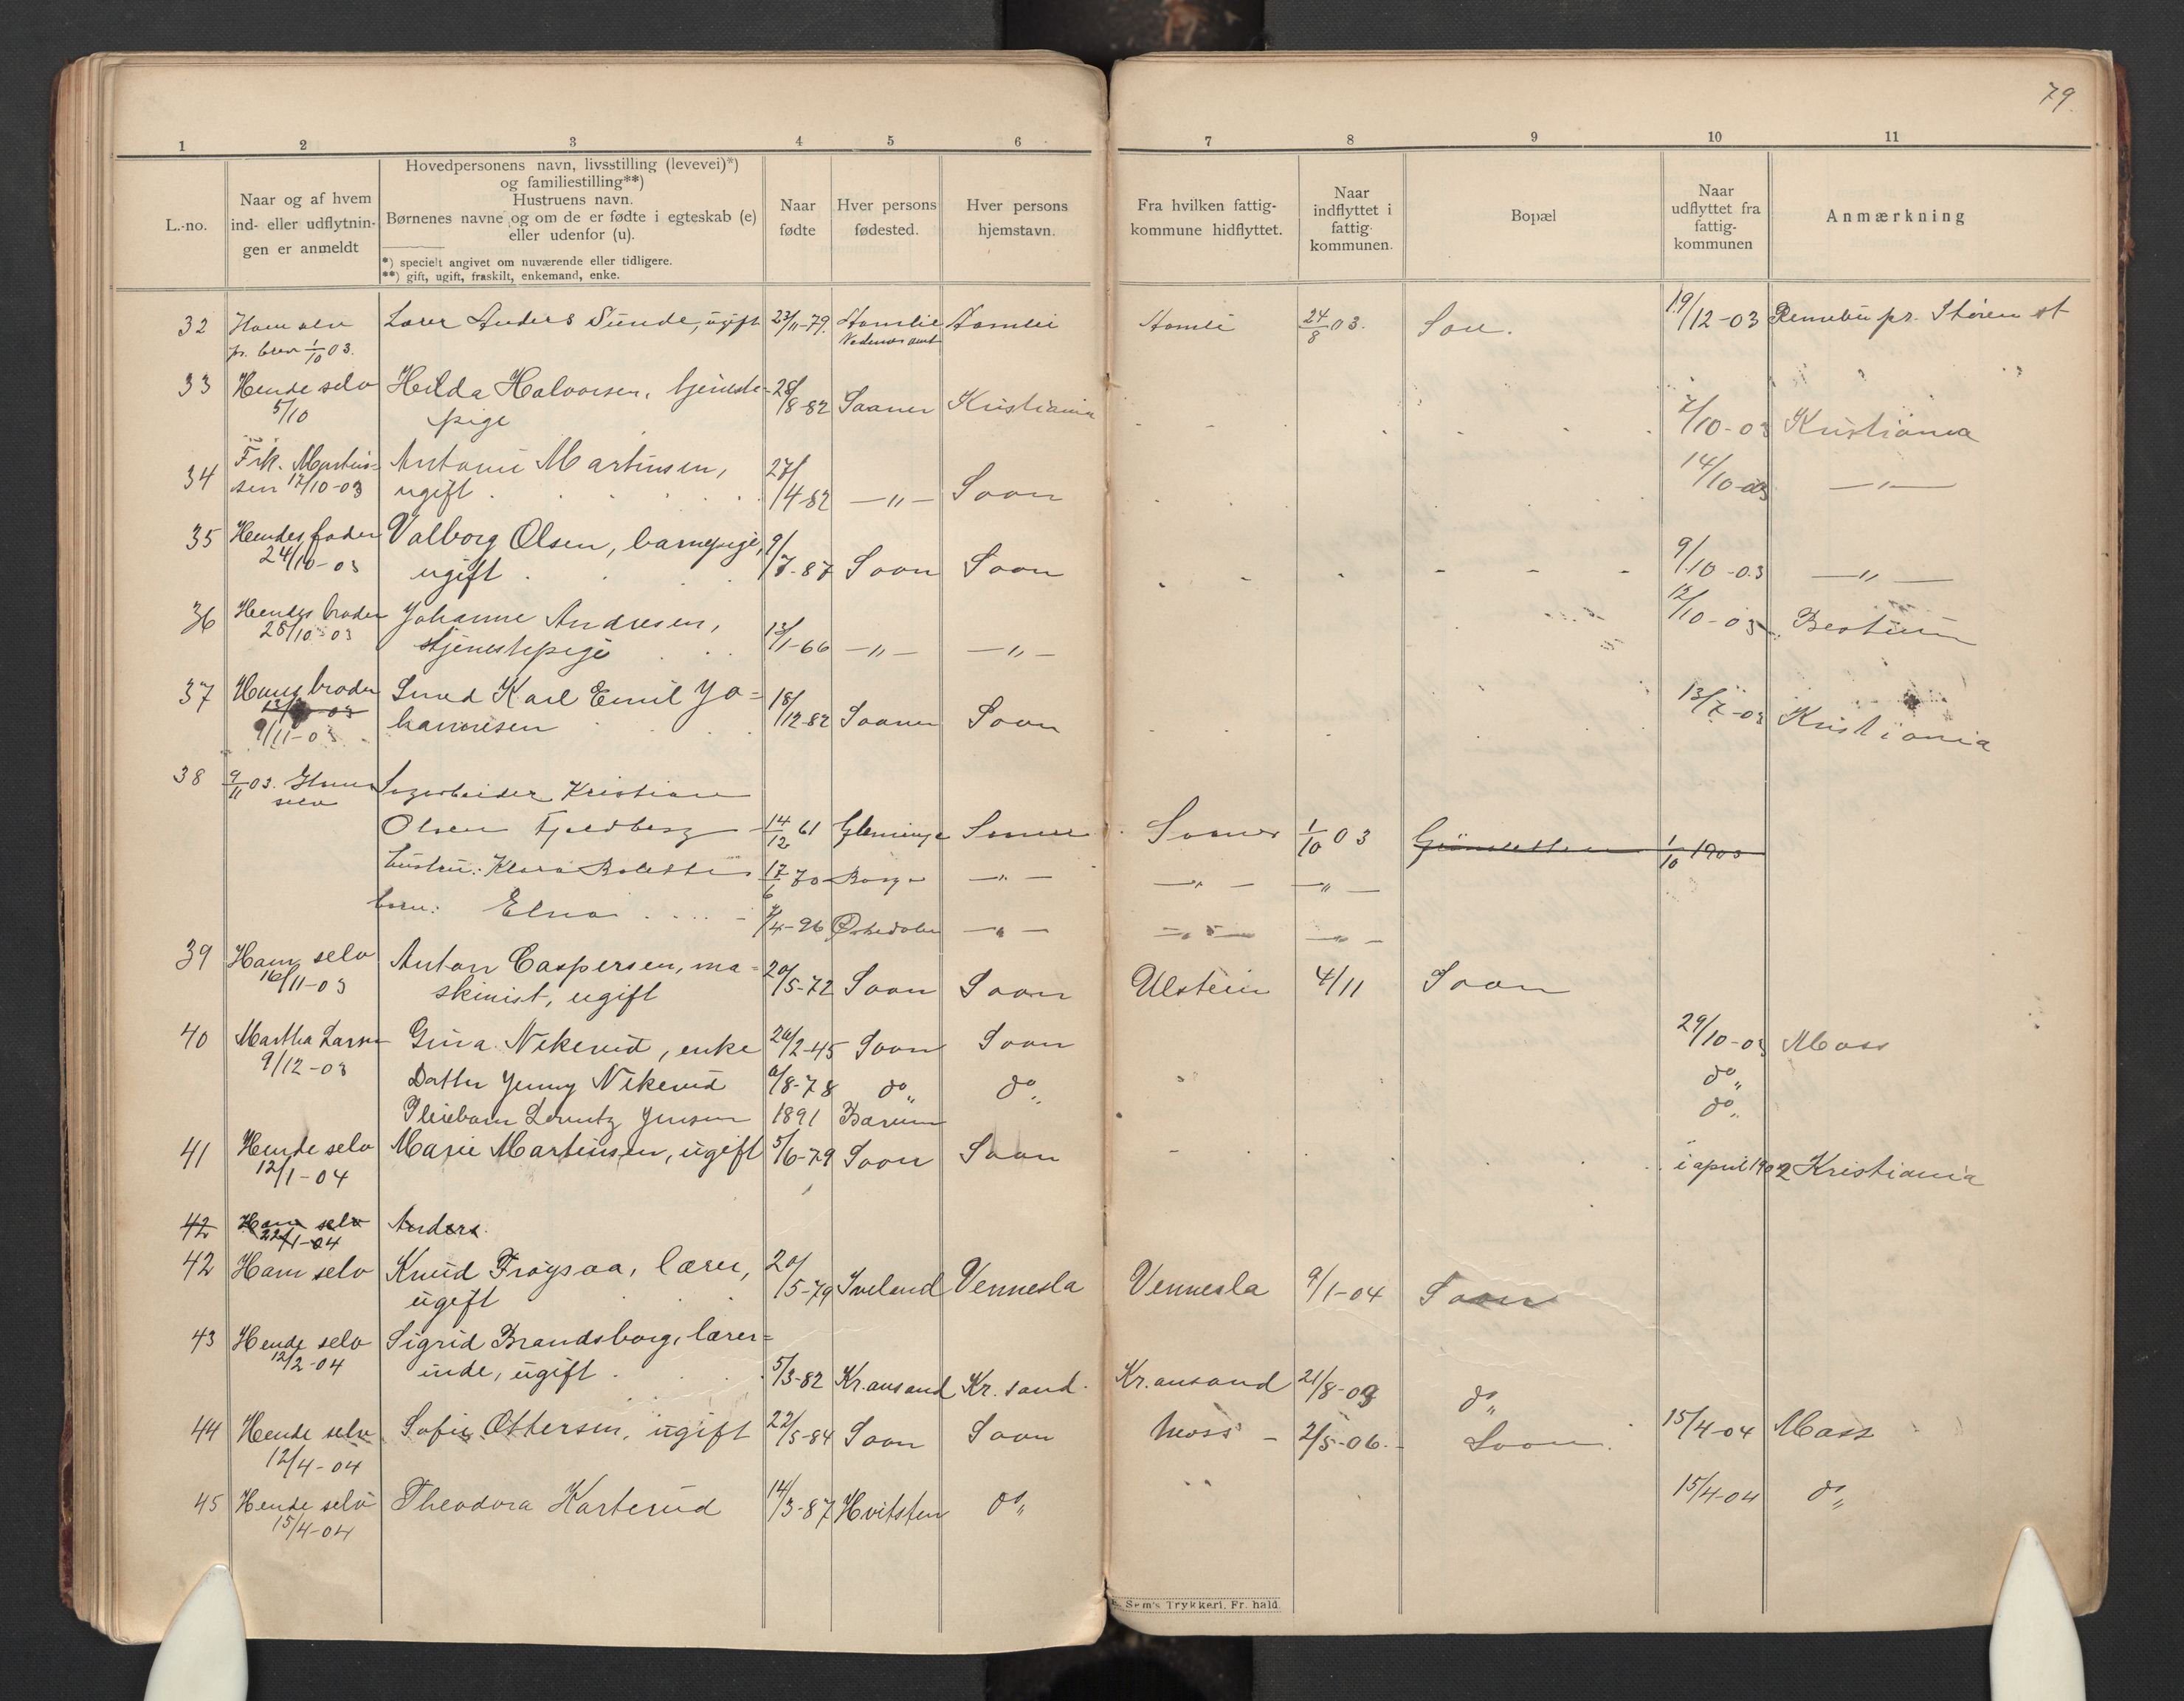 79.
1 2 3 4 5 6 7 8 9 10 11
L.-no.
Naar og af hvem
ind- eller udflytnin-
gen er anmeldt
Hovedpersonens navn, livsstilling (levevei)*)
og familiestilling**)
Hustruens navn.
Børnenes navne og om de er fødte i egteskab (e)
eller udenfor (u).
*) specielt angivet om nuværende eller tidligere.
**) gift, ugift, fraskilt, enkemand, enke.
Naar
fødte
Hver persons
fødested.
Hver persons
hjemstavn.
Fra hvilken fattig-
kommune hidflyttet.
Naar
indflyttet i
fattig-
kommunen.
Bopæl
Naar
udflyttet fra
fattig-
kommunen
Anmærkning
32 Ham selv Lærer Anders Sunde, ugift 23/11-79. Aamlie Aamlie Aamli 24/8 03. Son. 19/12-03 Rennebu pr. Støren st
pr. brev 1/10 03. Nedenes amt
33 Hende selv Hilda Halvorsen, tjeneste= 28/8-82 Saaner Kristiania 7/10-03 Kristiania
5/10 pige
34 Frk. Martin= Antonie Martinsen, 27/4-82 —"— Soon 14/10-03 —"—
sen 17/10-03 ugift
35 Hendes fader Valborg Olsen, barnepige, 9/7-87 Soon Soon 9/10-03 —"—
24/10-03 ugift
36 Hendes broder Johanne Andresen, 13/1-66 —"— —"— 12/10-03 Bestum
28/10-03 tjenestepige
37 Hans broder Smed Karl Emil Jo= 18/12-82 Saaner Soon 13/7-03 Kristiania
9/11-03 hannesen
38 9/11 03. Ham Sagarbeider Kristian
selv Olsen Fjeldberg 14/12 61 Glemminge Saaner 1/10 03 1/10 1903
hustru: Klara Bolette 17/6 70 Borge —"— —"— —"—
barn: Elna 7/4-96 —"— —"— —"—
39 Ham selv Anton Caspersen, ma= 20/5-72 Soon Soon Ulstein 4/11 Soon
16/11-03 skinist, ugift
40 Martha Larsen Gina Nikerud, enke 20/2-45 Soon Soon 29/10-03 Moss
9/12-03 Datter Jenny Nikerud /8-78 do" do" do"
Pleiebarn Lorentz Jensen 1891 Bærum do"
41 Hende selv Marie Martinsen, ugift 5/6-79 Soon Soon i april 1902 Kristiania
12/1-04
42 Ham selv Anders.
22/1-04
42 Ham selv Knud Frøysaa, lærer, 20/5-79 Iveland Vennesla Vennesla 9/1-04 Soon
ugift
43 Hende selv Sigrid Brandsborg, lærer=
12/2-04 inde, ugift 5/3-82 Kr.ansand Kr. sand. Kr.ansand 21/8-03 do"
44 Hende selv Sofie Ottersen, ugift 22/5-84 Soon Soon Moss - 2/5-06.- Soon. 15/4-04 Moss
12/4-04
45 Hende selv Theodora Karterud 14/3-87 Hvitsten do" 15/4-04 do"
15/4-04
E. Sem's Trykkeri, Fr. hald.